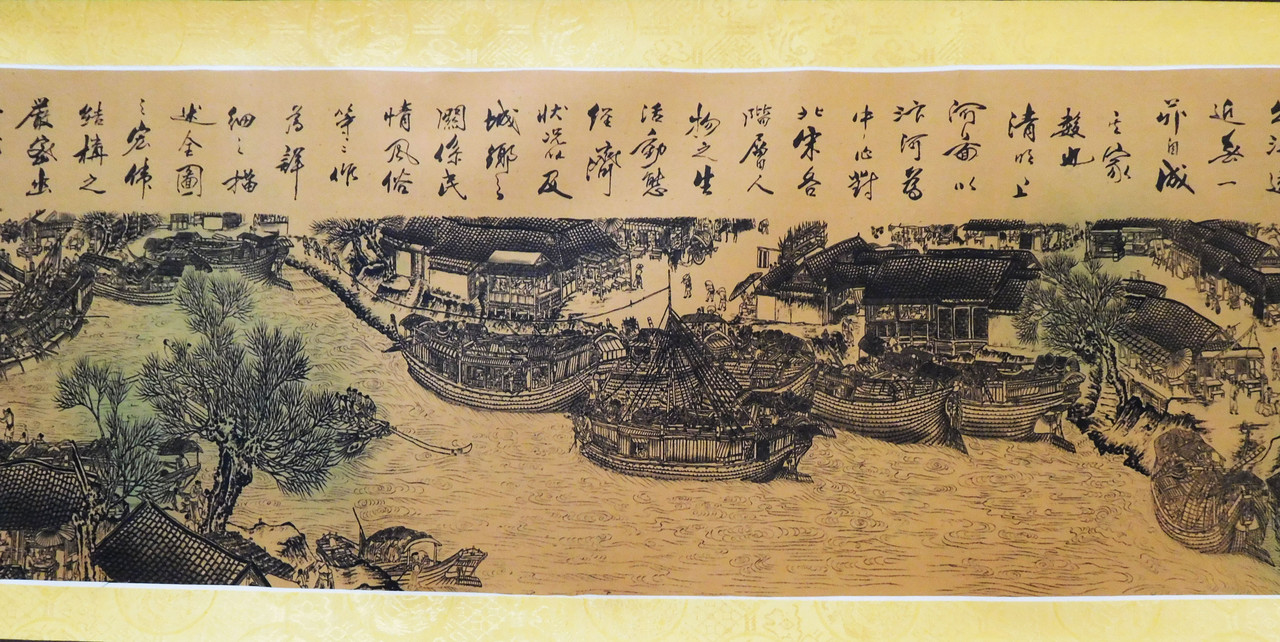 近無一
自成
家
數也
清明上
河畫以
汴河為
中心對
北宋各
階層人
物之生
活動態
經濟
狀況以及
城鄉之
關係民
情風俗
等等作
為詳
細之描
述全圖
之宏偉
結構之
嚴密出